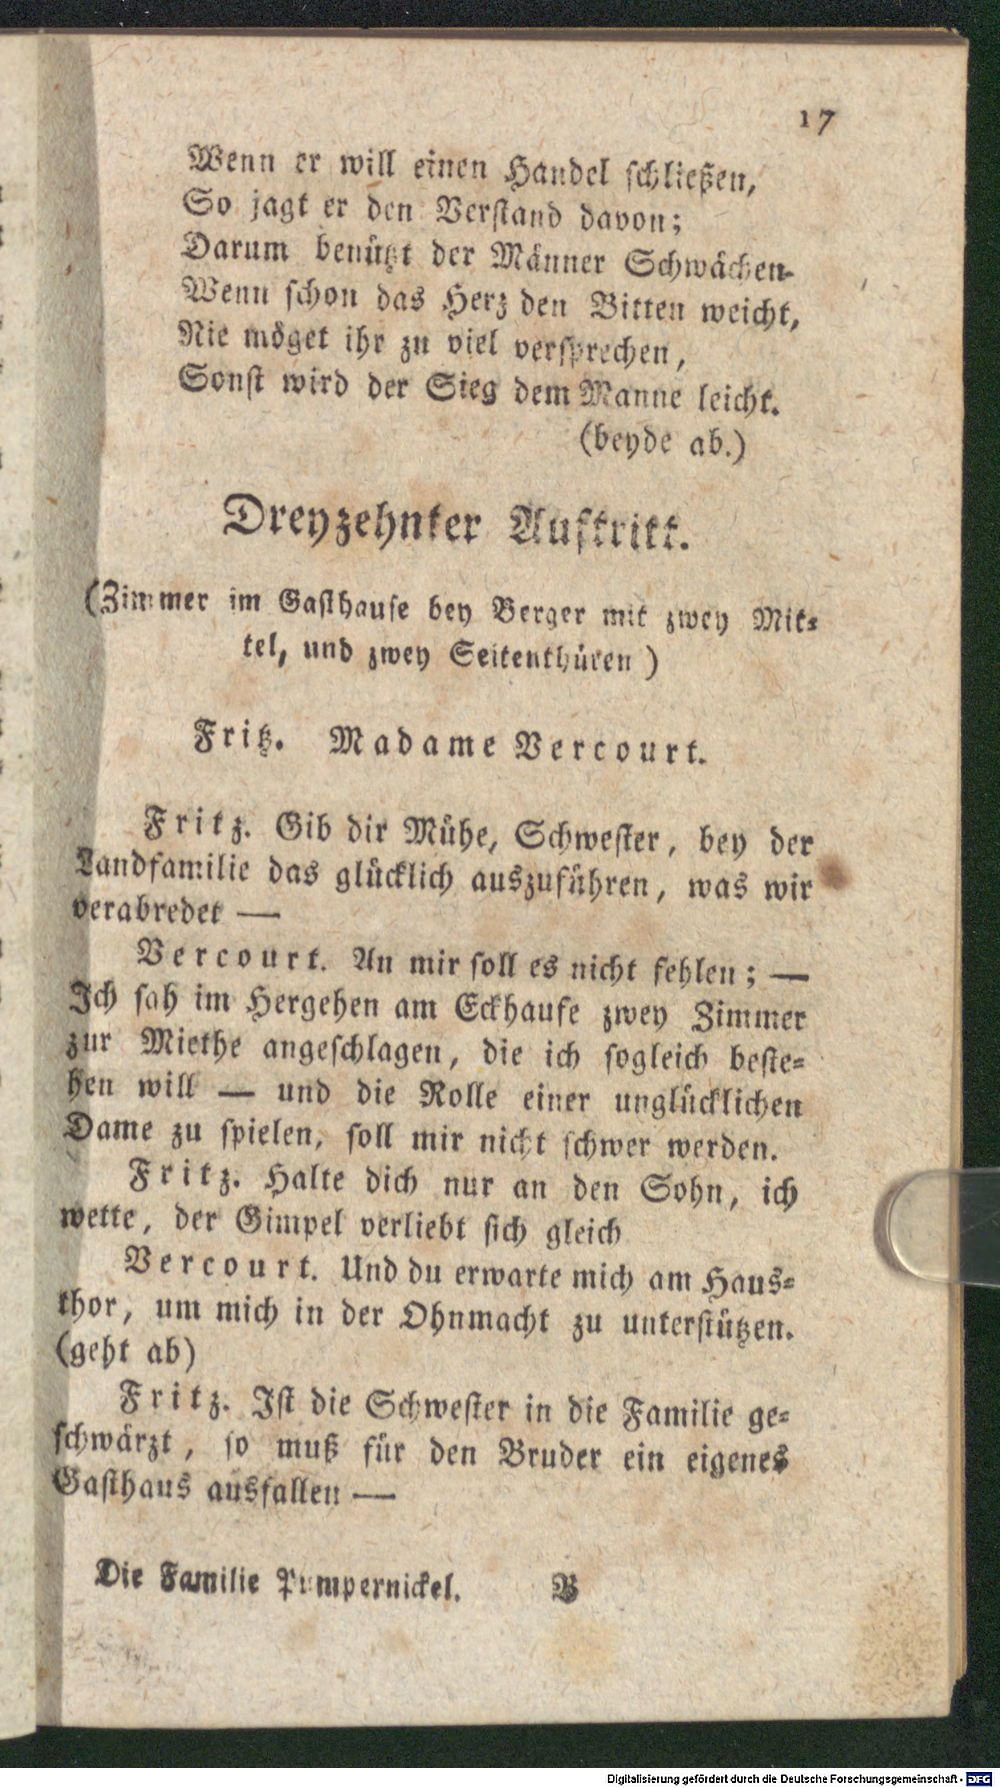 17
Wenn er will einen Handel schließen,
So jagt er den Verstand davon;
Darum benützt der Männer Schwächen
Wenn schon das Herz den Bitten weicht,
Nie möget ihr zu viel versprechen,
Sonst wird der Sieg dem Manne leicht.
(beyde ab.)
Dreyzehnter Auftritt.
(Zimmer im Gasthause bey Berger mit zwey Mit-
tel, und zwey Seitenthüren)
Fritz. Madame Vercourt.
Fritz. Gib dir Mühe, Schwester, bey der
Landfamilie das glücklich auszuführen, was wir
verabredet —
Vercourt. An mir soll es nicht fehlen; —
Ich sah im Hergehen am Eckhause zwey Zimmer
zur Miethe angeschlagen, die ich sogleich beste-
hen will — und die Rolle einer unglücklichen
Dame zu spielen, soll mir nicht schwer werden.
Fritz. Halte dich nur an den Sohn, ich
wette, der Gimpel verliebt sich gleich
Vercourt. Und du erwarte mich am Haus-
thor, um mich in der Ohnmacht zu unterstützen.
(geht ab)
Fritz. Ist die Schwester in die Familie ge-
schwärzt, so muß für den Bruder ein eigenes
Gasthaus ausfallen —
Die Familie Pumpernickel. B
Digitalisierung gefördert durch die Deutsche Forschungsgemeinschaft - DFG